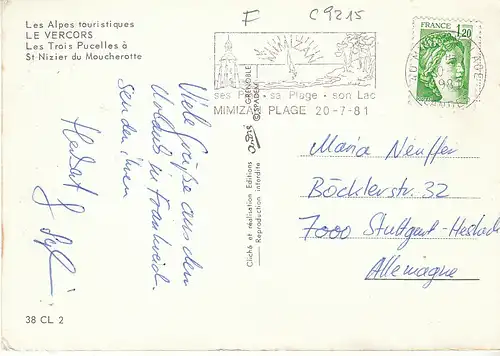 F
C 9215
Les Alpes touristiques
LE VERCORS
Les Trois Pucelles à
St Nizier du Moucherotte
MIMIZAN
ses Pins · sa Plage · son Lac
MIMIZAN PLAGE 20-7-81
FRANCE
1,20
Viele Grüße aus dem
Urlaub in Frankreich
senden Ihnen
Herbert
Cliché et réalisation Editions
Reproduction interdite
GRENOBLE
©SPADEM
Maria Neuffer
Böcklerstr. 32
7000 Stuttgart-
Allemagne
38 CL 2